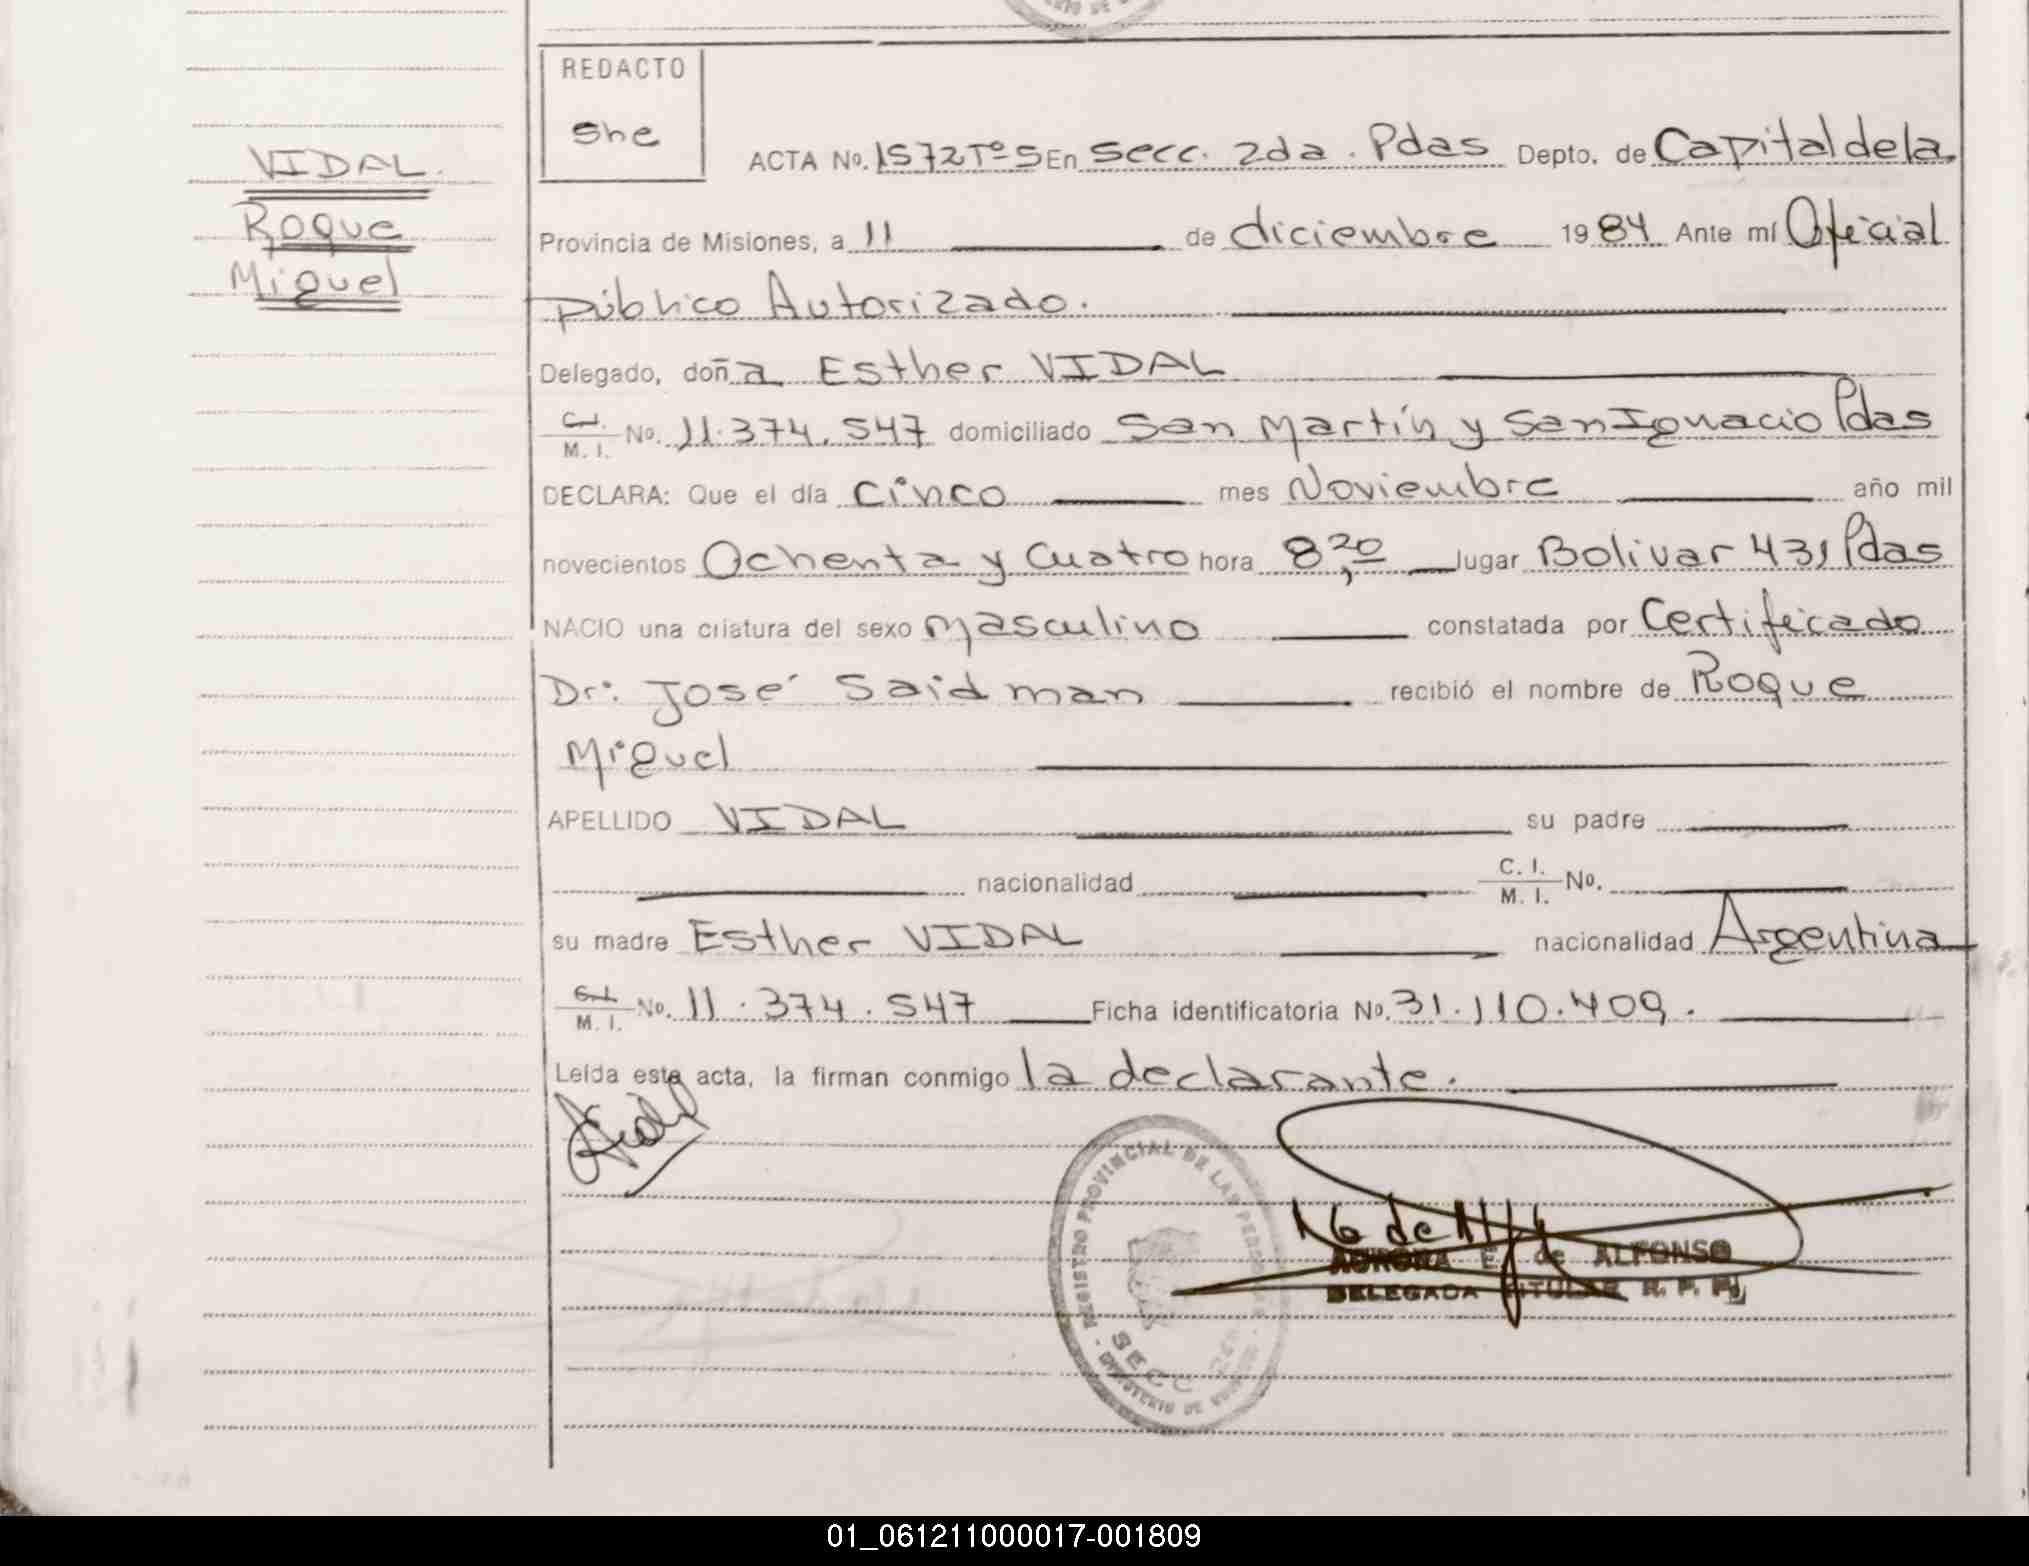 REDACTO
She
VIDAL.
Roque
Miguel
ACTA No. 1572 Tº 5 En Secc. 2da. Pdas Depto. de Capital de la
Provincia de Misiones, a 11 de diciembre 1984 Ante mí Oficial
Público Autorizado.
Delegado, doña Esther VIDAL
C.I. M. I. No. 11.374.547 domiciliado San Martín y San Ignacio Pdas
DECLARA: Que el día cinco mes Noviembre año mil
novecientos Ochenta y Cuatro hora 8,20 lugar Bolivar 431 Pdas
NACIO una criatura del sexo masculino constatada por Certificado
Dr: José Saidman recibió el nombre de Roque
Miguel
APELLIDO VIDAL su padre
nacionalidad C. I. M. I. No.
su madre Esther VIDAL nacionalidad Argentina
C.I. M. I. No. 11.374.547 Ficha identificatoria No. 31.110.409.
Leída este acta, la firman conmigo la declarante.
REGISTRO PROVINCIAL DE LAS PERSONAS
SECC 2da
MINISTERIO DE GOBIERNO
AURORA E. de ALFONSO
DELEGADA TITULAR R. P. P.
01_061211000017-001809